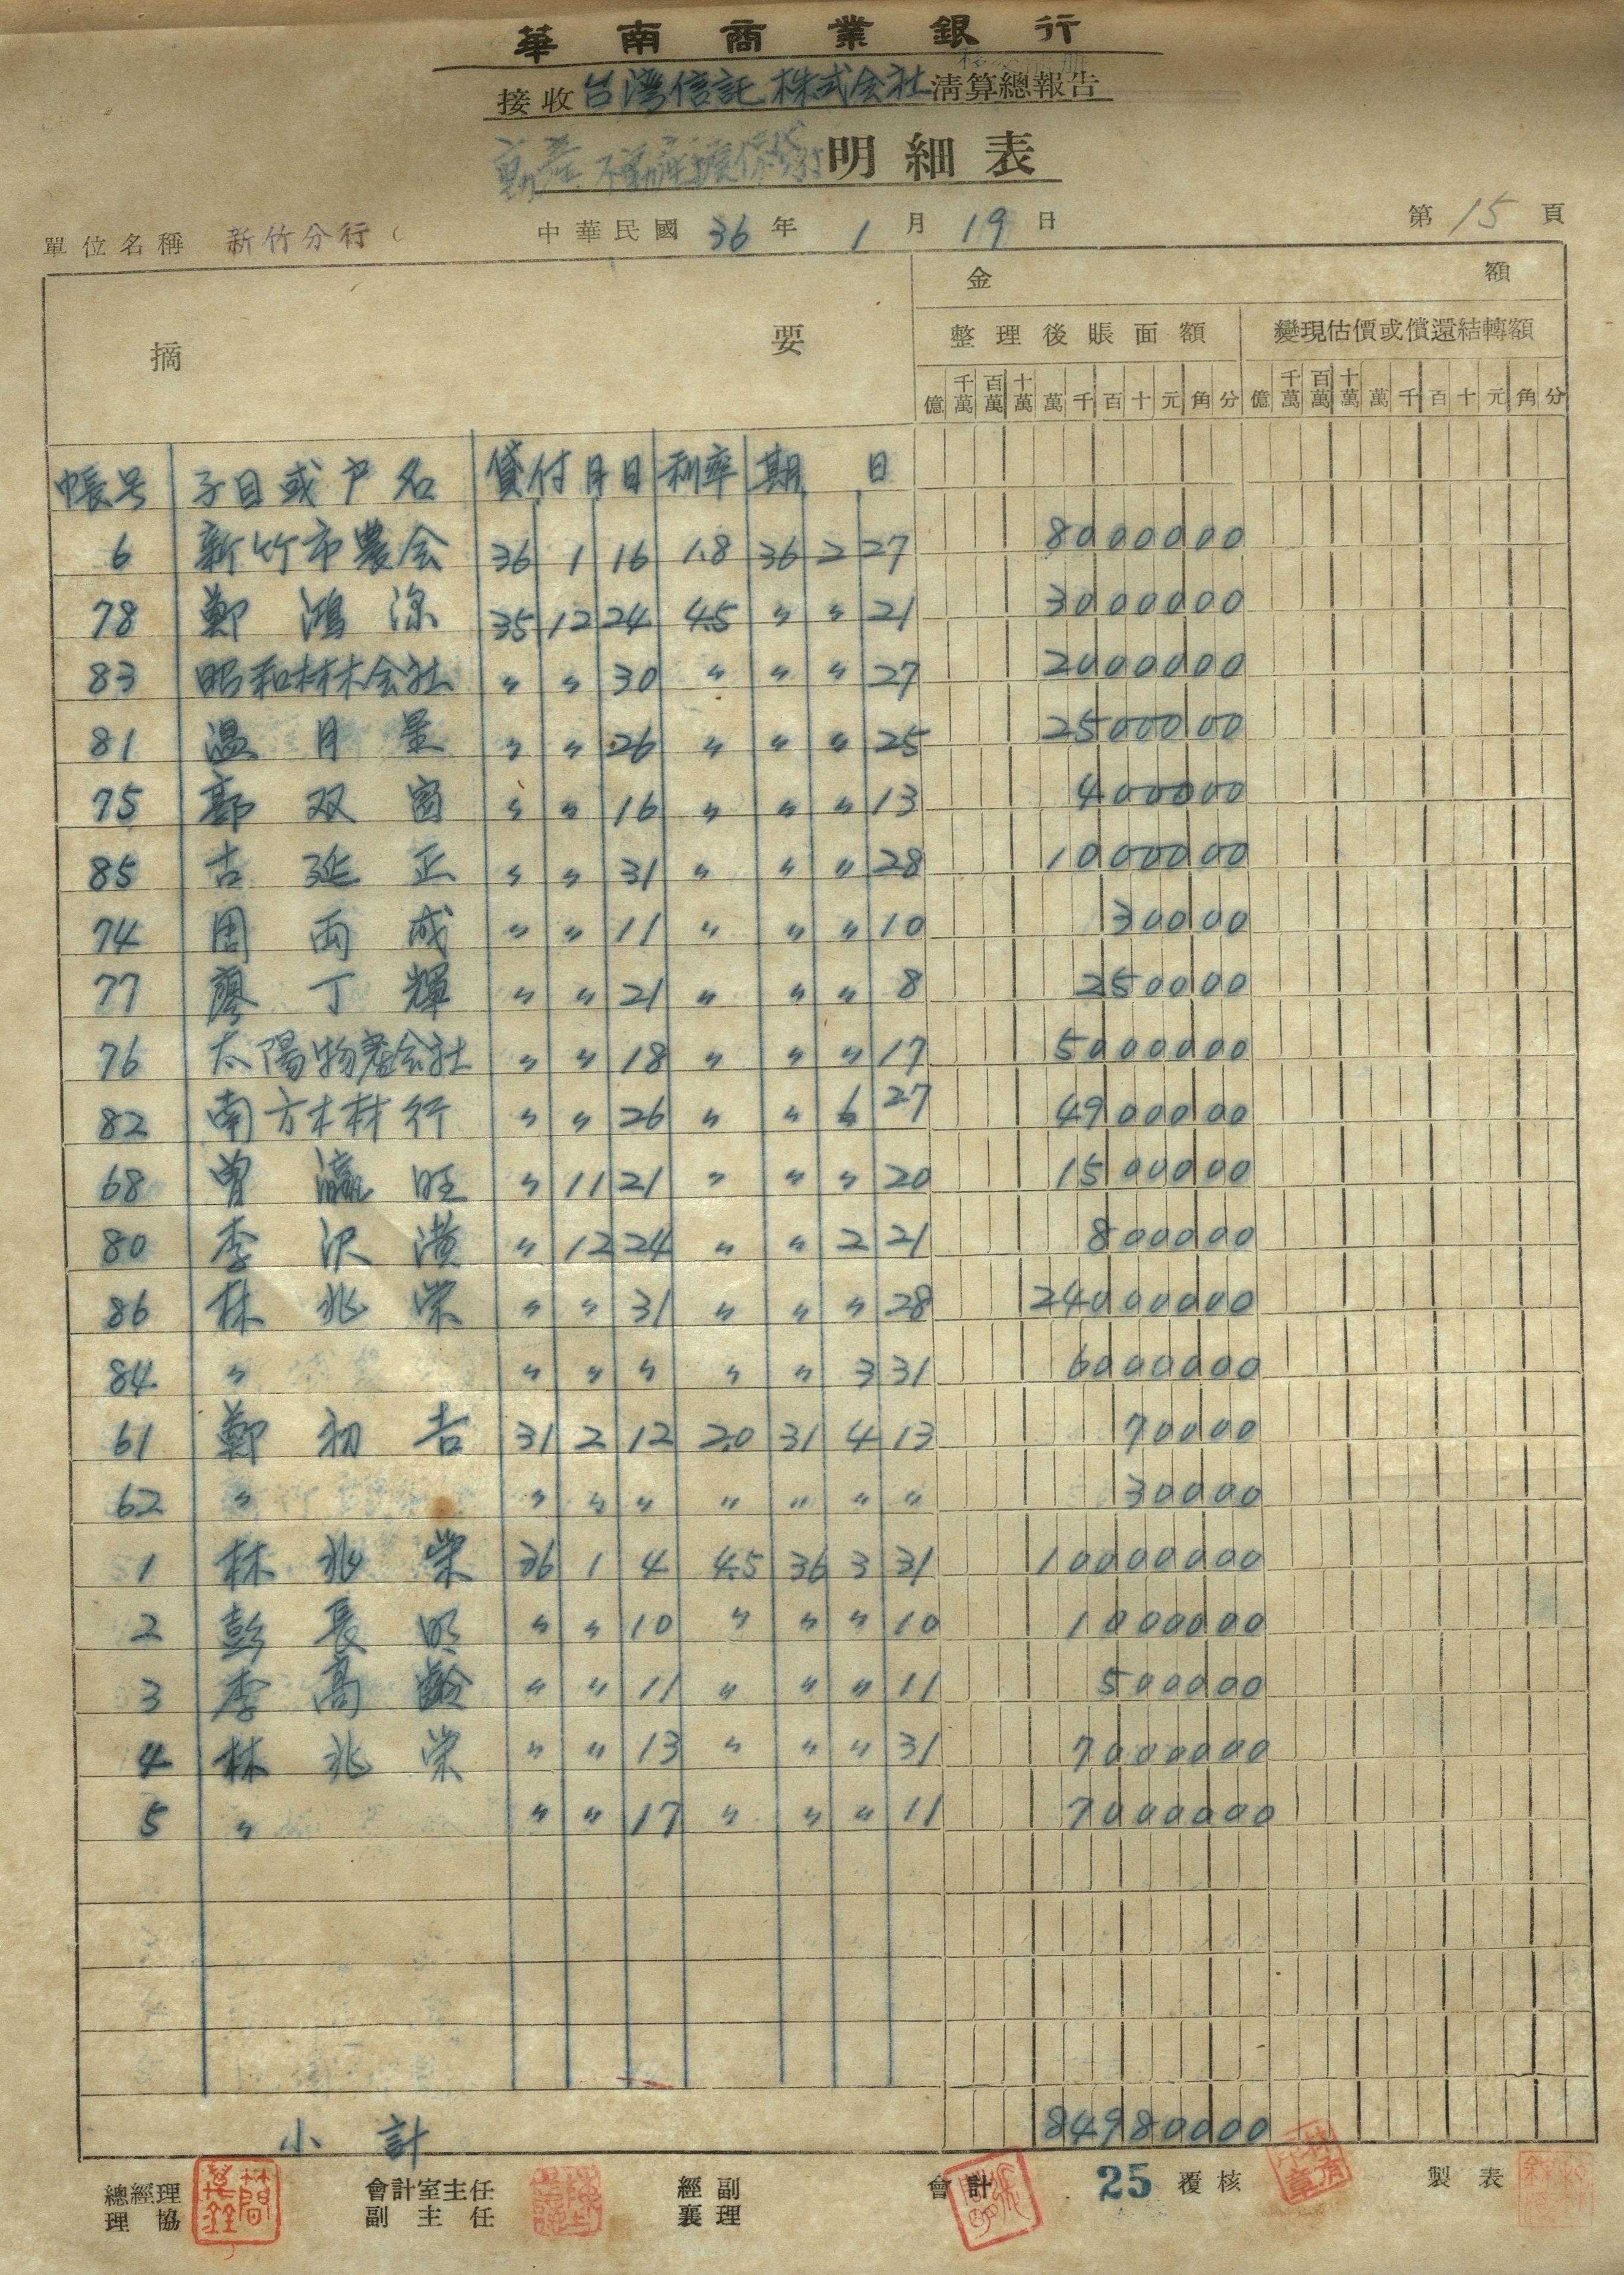 華南商業銀行
接收台湾信託株式会社清算總報告
動產不動產擔保貸付明細表
單位名稱 新竹分行 中華民國 36 年 1 月 19 日 第 15 頁
摘要 金額
整理後賬面額 變現估價或償還結轉額
億 千萬 百萬 十萬 萬 千 百 十 元 角 分 億 千萬 百萬 十萬 萬 千 百 十 元 角 分
帳号 子目或户名 貸付月日 利率 期日
6 新竹市農会 36 1 16 1.8 36 2 27 8000000
78 鄭鴻 35 12 24 4.5 〃 〃 21 3000000
83 昭和材木会社 〃 〃 30 〃 〃 〃 27 2000000
81 温月 〃 〃 26 〃 〃 〃 25 2500000
75 双 〃 〃 16 〃 〃 〃 13 400000
85 古延正 〃 〃 31 〃 〃 〃 28 1000000
74 周雨成 〃 〃 11 〃 〃 〃 10 30000
77 廖丁輝 〃 〃 21 〃 〃 〃 8 250000
76 太陽物產会社 〃 〃 18 〃 〃 〃 17 5000000
82 南方木材行 〃 〃 26 〃 〃 27 4900000
68 曾瀛旺 〃 11 21 〃 〃 〃 20 1500000
80 李沢 〃 12 24 〃 〃 2 21 800000
86 林兆栄 〃 〃 31 〃 〃 〃 28 24000000
84 〃 〃 〃 〃 〃 〃 3 31 6000000
61 鄭初吉 31 2 12 2.0 31 4 13 70000
62 〃 〃 〃 〃 〃 〃 〃 〃 30000
1 林兆栄 36 1 4 4.5 36 3 31 10000000
2 彭長明 〃 〃 10 〃 〃 〃 10 1000000
3 李高齡 〃 〃 11 〃 〃 〃 11 500000
4 林兆栄 〃 〃 13 〃 〃 〃 31 7000000
5 〃 〃 〃 17 〃 〃 〃 11 7000000
小計 84980000
總經理 會計室主任 經副 會計 25 覆核 製表
理協 副主任 襄理